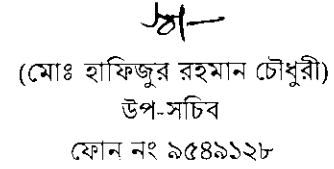 (মোঃ হাফিজুর রহমান চৌধুরী)
উপ-সচিব
ফোন নং ৯৫৪৯১২৮